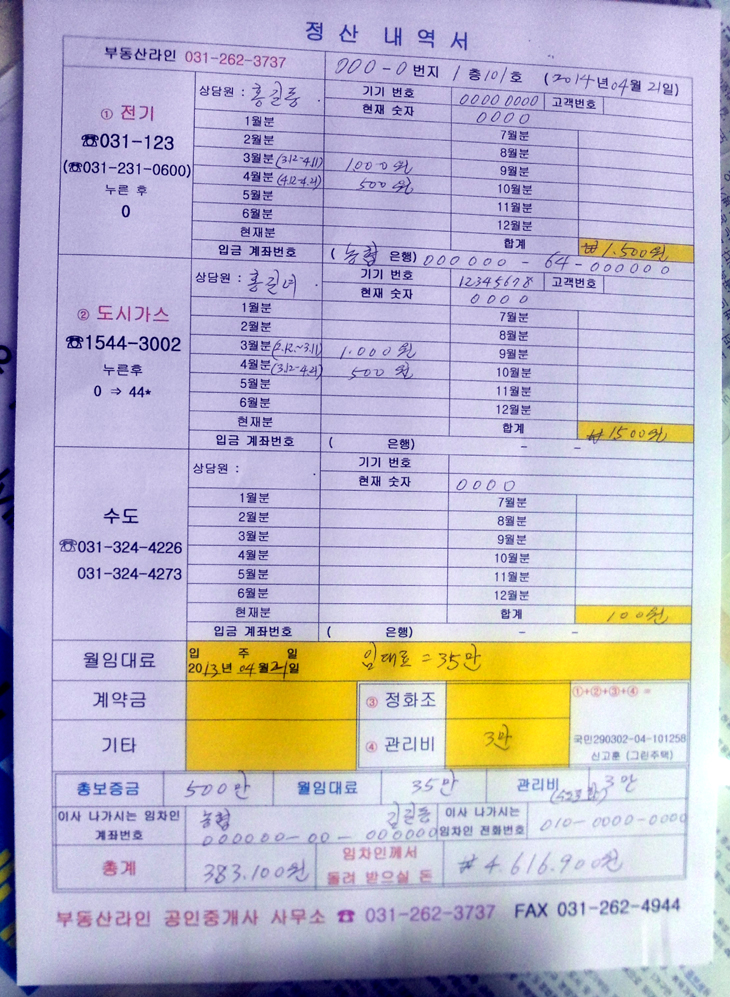 정 산 내 역 서
부동산라인 031-262-3737 000-0 번지 1 층 101 호 (2014년 04월 21일)
① 전기
☎031-123
(☎031-231-0600)
누른 후
0
상담원 : 홍길동 . 기기 번호 0000 0000 고객번호
현재 숫자 0000
1월분 7월분
2월분 8월분
3월분 (3.12~4.11) 1000원 9월분
4월분 (4.12~4.21) 500원 10월분
5월분 11월분
6월분 12월분
현재분 합계 ₩1.500원
입금 계좌번호 ( 농협 은행) 000000 - 64 - 000000
② 도시가스
☎1544-3002
누른후
0 ⇒ 44*
상담원 : 홍길녀 . 기기 번호 12345678 고객번호
현재 숫자 0000
1월분 7월분
2월분 8월분
3월분 (2.12.~3.11) 1.000원 9월분
4월분 (3.12~4.21) 500원 10월분
5월분 11월분
6월분 12월분
현재분 합계 ₩1500원
입금 계좌번호 ( 은행) - -
수도
☎031-324-4226
031-324-4273
상담원 : . 기기 번호
현재 숫자 0000
1월분 7월분
2월분 8월분
3월분 9월분
4월분 10월분
5월분 11월분
6월분 12월분
현재분 합계 100원
입금 계좌번호 ( 은행) - -
월임대료 입 주 일
2013년 04월21일 임대료 = 35만
계약금 ③ 정화조 ①+②+③+④ =
기타 ④ 관리비 3만 국민290302-04-101258
신고훈 (그린주택)
총보증금 500만 월임대료 35만 관리비 3만
이사 나가시는 임차인 계좌번호 농협 김길동
000000-00-000000
이사 나가시는 임차인 전화번호 010-0000-0000
총계 383.100원 임차인께서 돌려 받으실 돈 ₩4.616.900원
부동산라인 공인중개사 사무소 ☎ 031-262-3737 FAX 031-262-4944